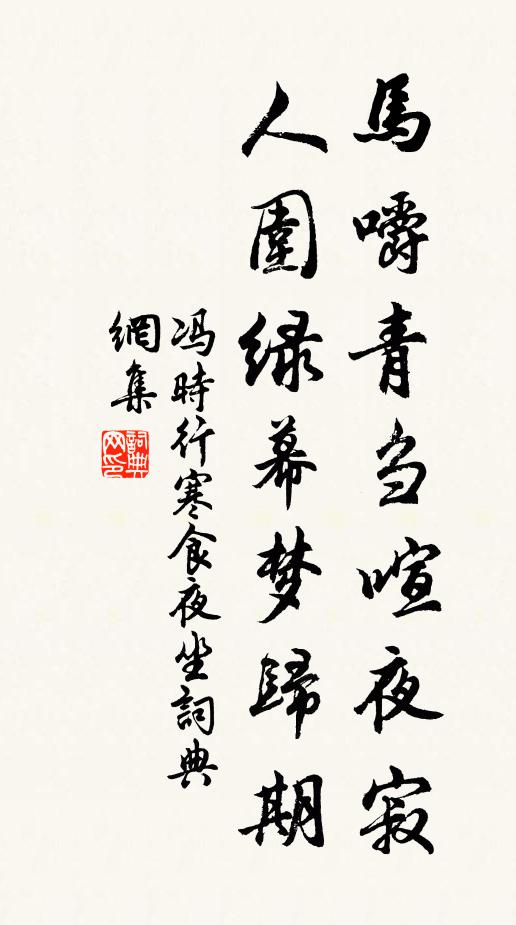 馬嚼青刍喧夜寂
人圍緑幕梦歸期
冯時行寒食夜坐詞典
網集
詞典網印